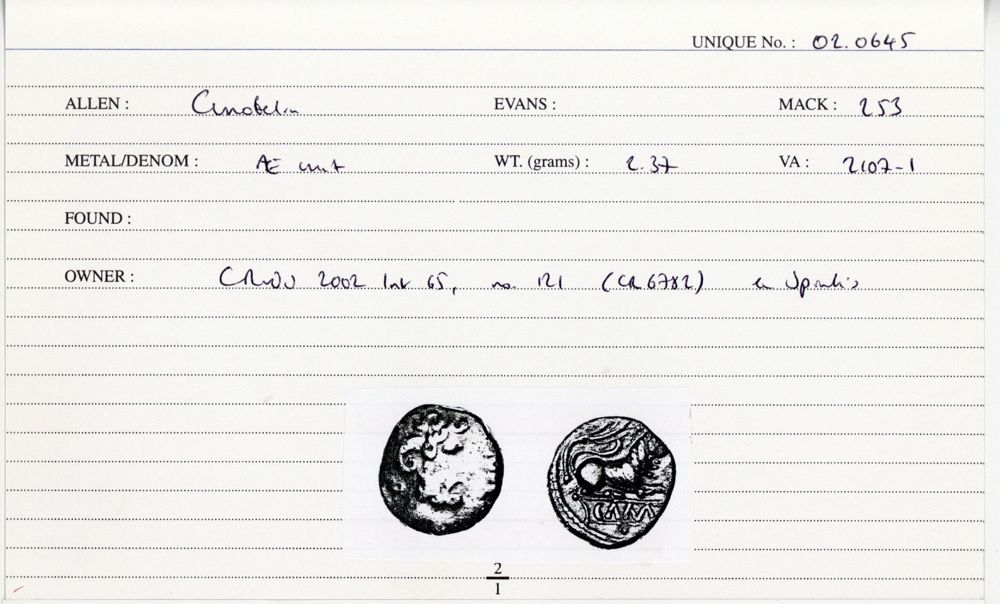 UNIQUE No. : 02.0645
ALLEN : Cunobelin EVANS : MACK : 253
METAL/DENOM : Æ unit WT. (grams) : 2.37 VA : 2107-1
FOUND :
OWNER : 2002 65, no. 121 (CR 6782) ex Spink's
CAMV
2
1